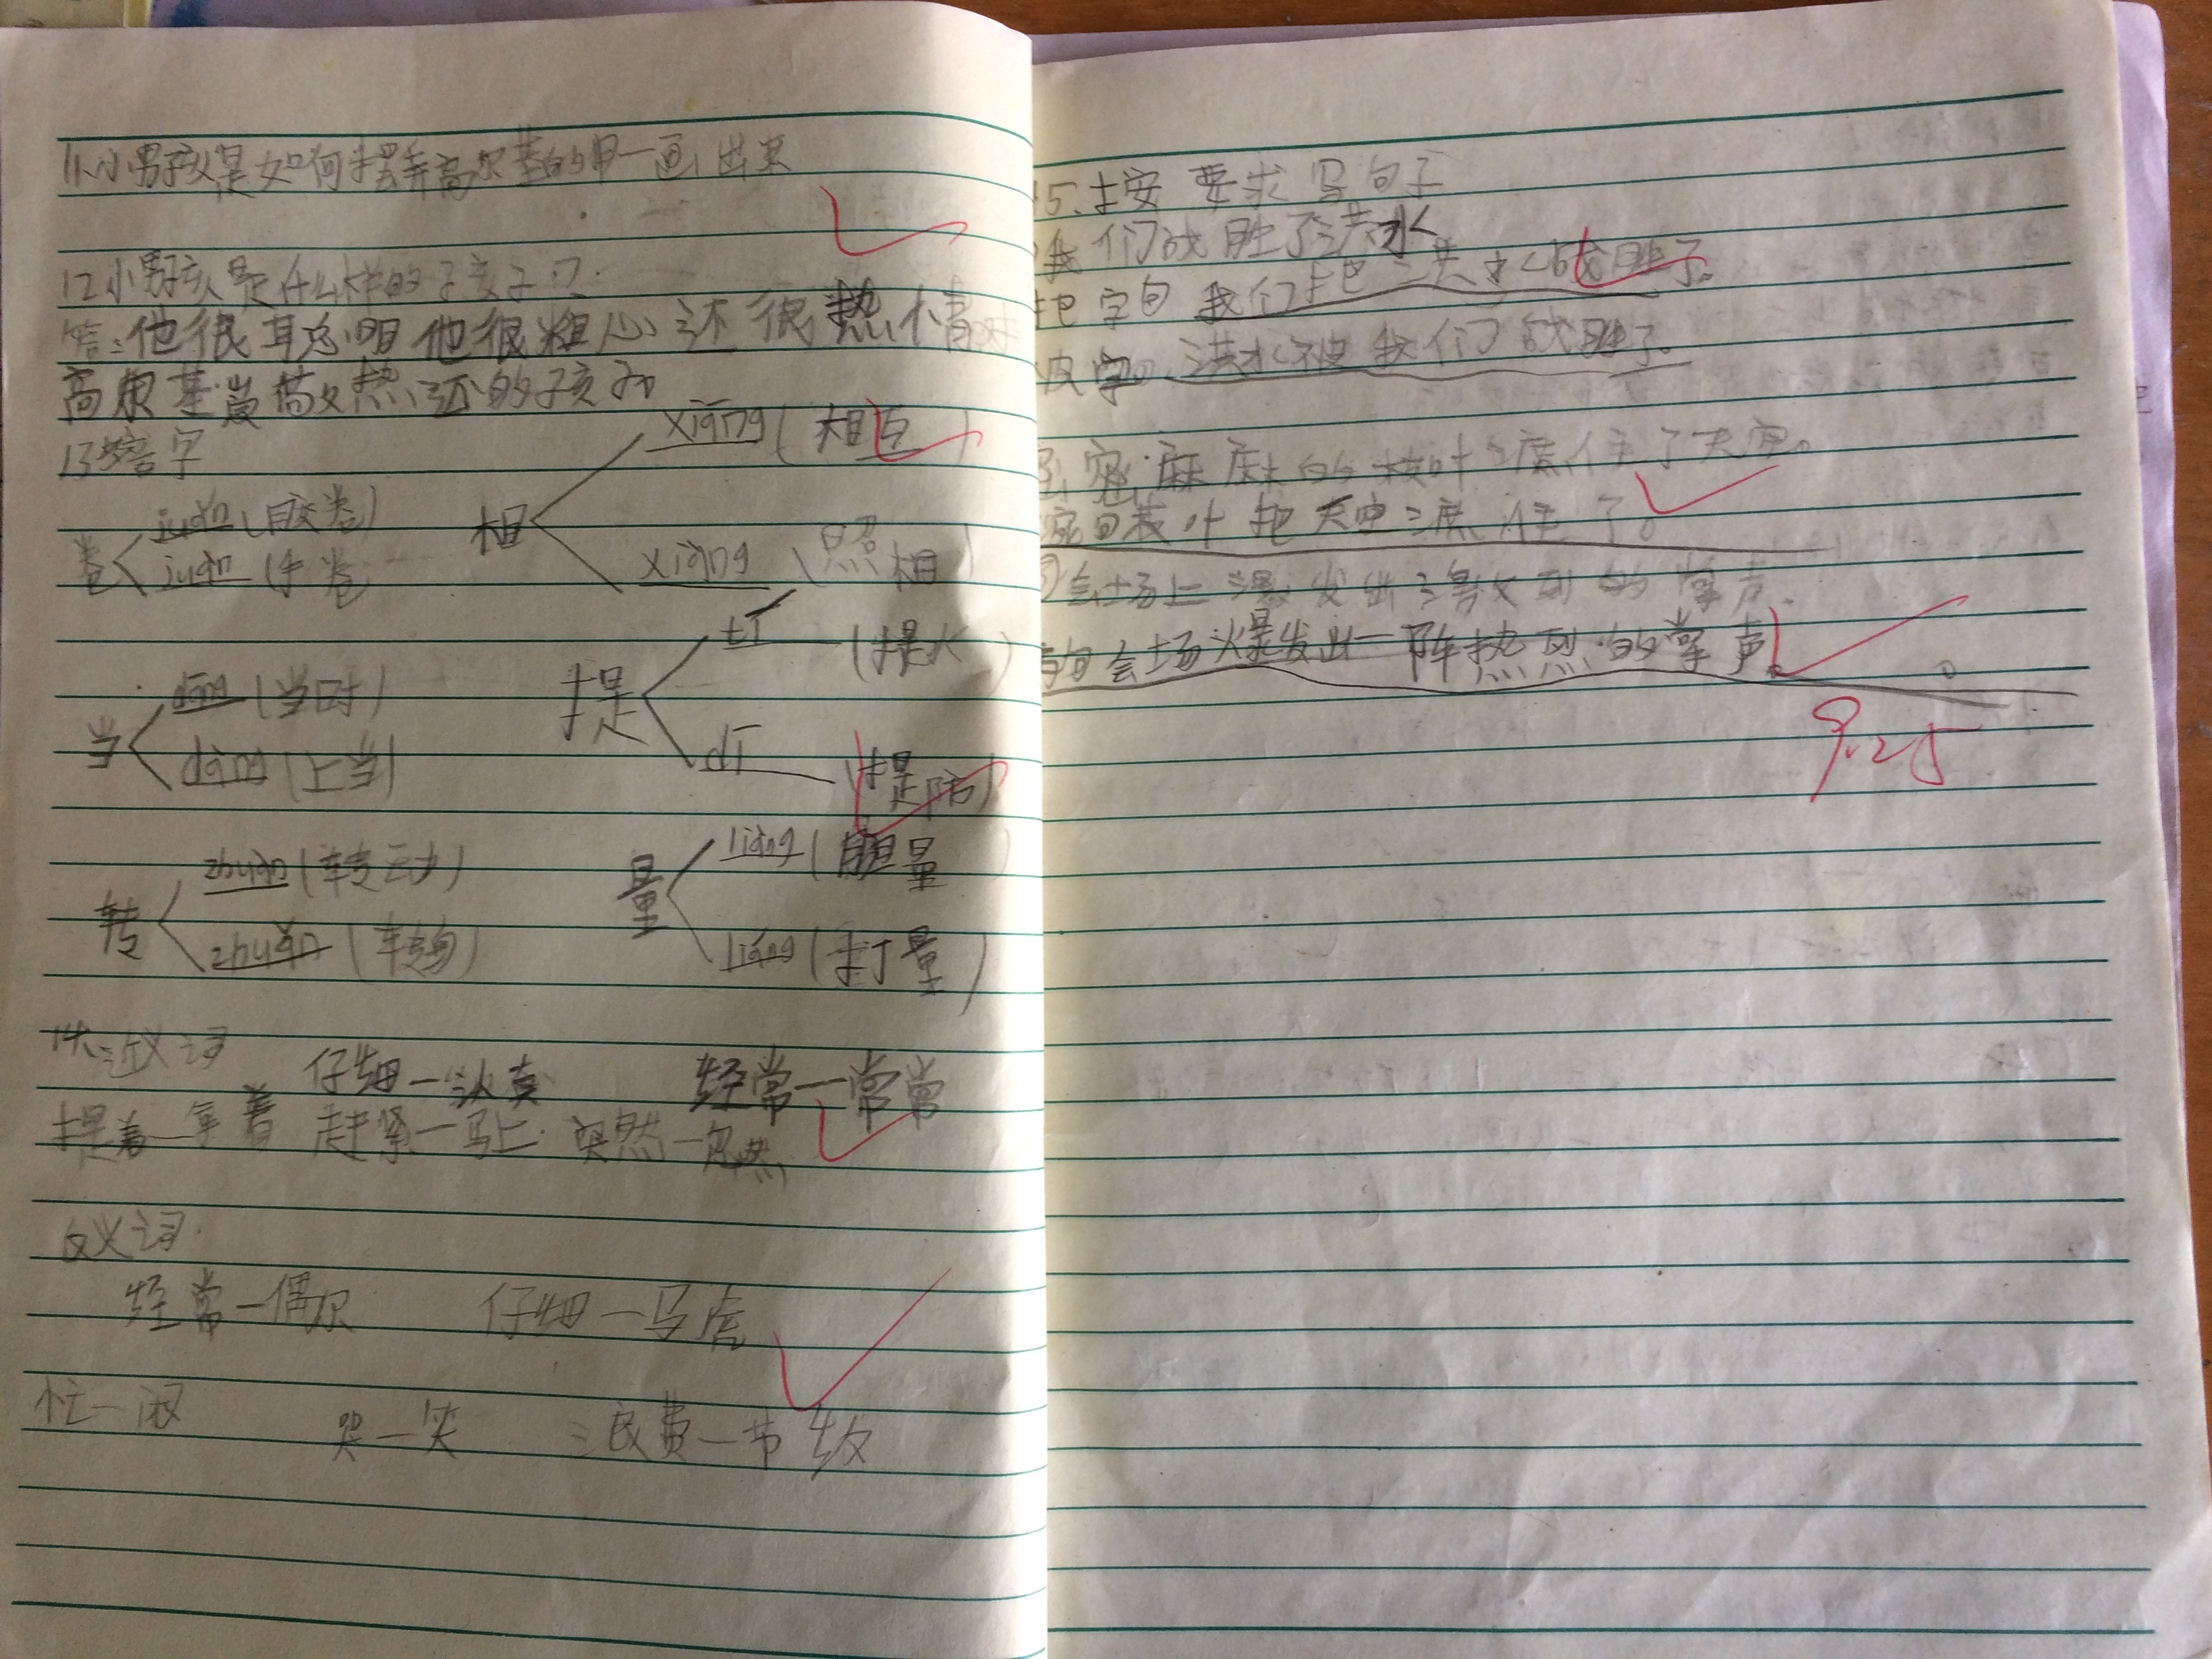 11、小男孩是如何摆弄高尔基的用一画出来
12小男孩是什么样的子孩子?
答:他很聪明他很粗心还很热情对
高尔基崇敬热
13 字
卷 juan(胶卷)
juan(手卷
相 xiang(相互)
xiang(照相)
当 dang(当时)
dang(上当)
提 tī (提火)
dī (提防)
转 zhuan(转动)
zhuan(转
量 liang(胆量
liang(打量)
14、近义词
仔细一认真 经常一常常
提着一拿着 赶紧一马上 突然一忽然
反义词
经常一偶尔 仔细一马虎
忙一闲 哭一笑 浪费一节
15、按要求写句子
我们战胜了洪水
把字句 我们把洪水战胜了。
洪水被我们战胜了。
密麻麻的枝叶 住了天空。
叶把天空 住了。
会场上爆发出 烈的掌声.
句会场爆发出一阵热烈的掌声。
9.25